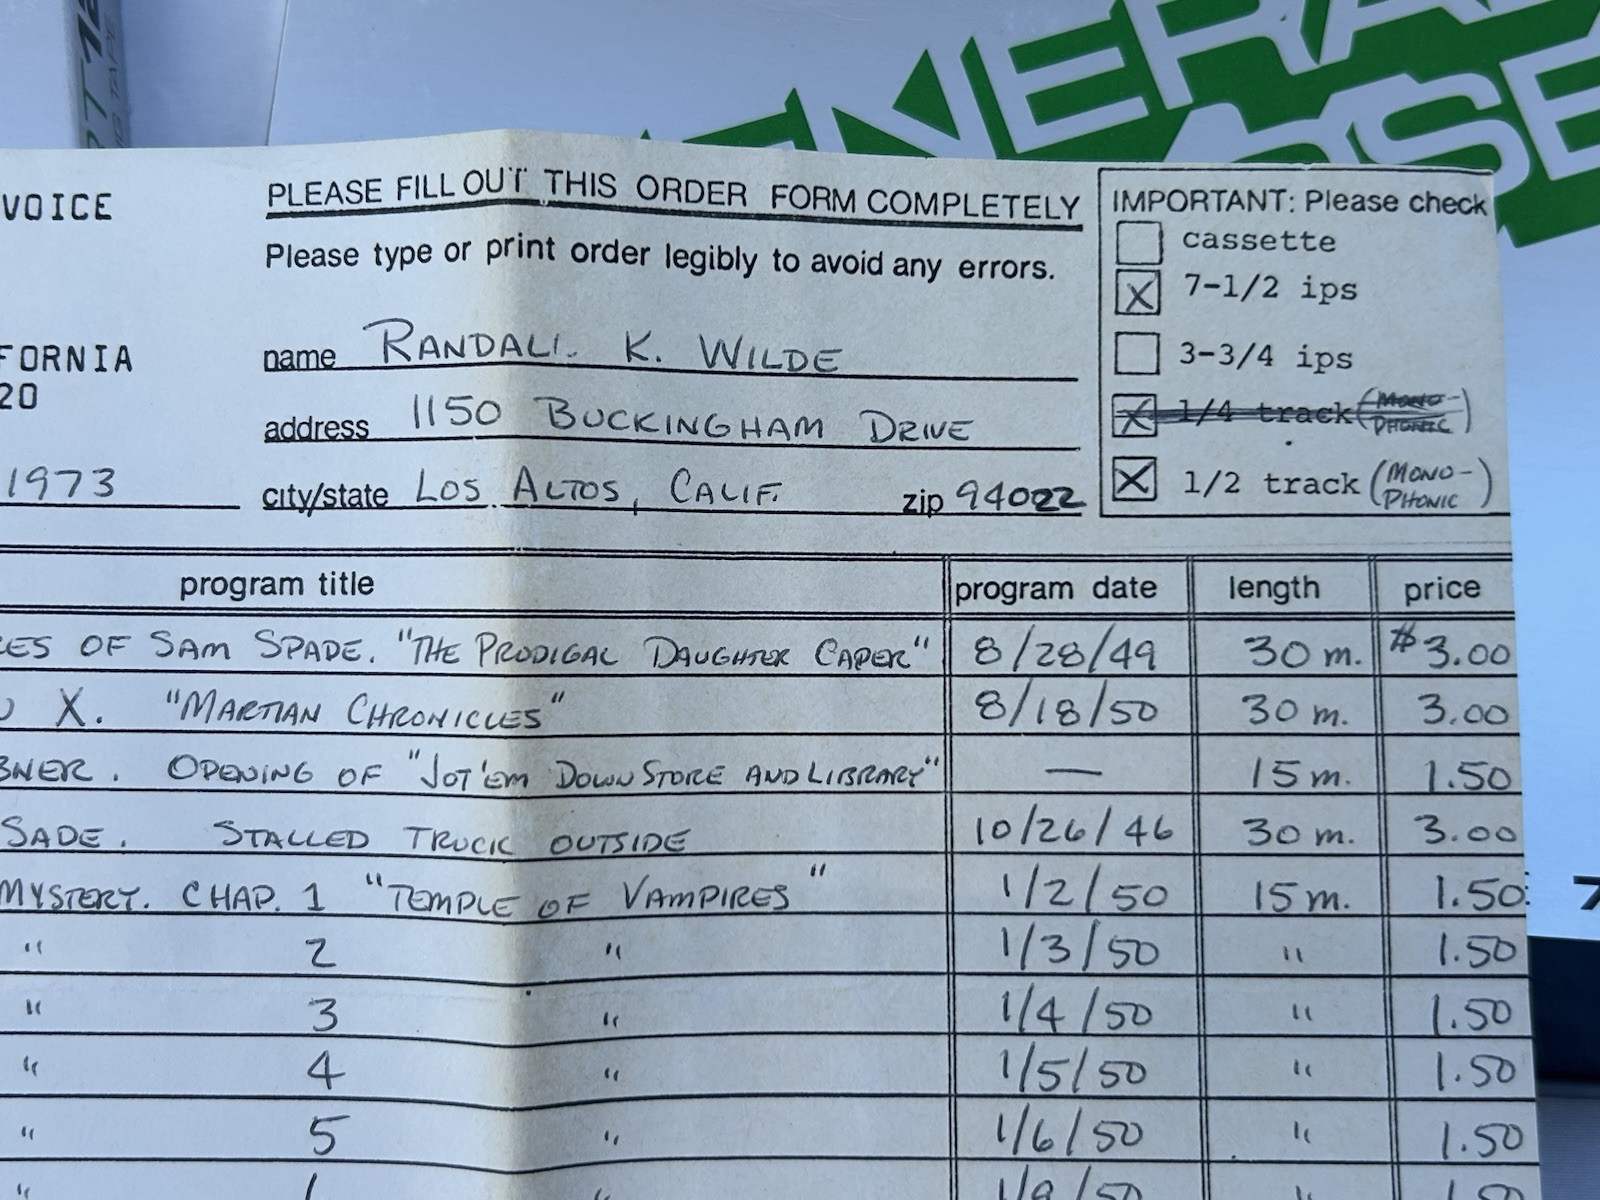 VOICE
PLEASE FILL OUT THIS ORDER FORM COMPLETELY
Please type or print order legibly to avoid any errors.
IMPORTANT: Please check
cassette
X 7-1/2 ips
3-3/4 ips
X 1/4 track (MONO-
PHONIC)
X 1/2 track (MONO-
PHONIC)
name RANDALL K. WILDE
address 1150 BUCKINGHAM DRIVE
city/state LOS ALTOS, CALIF. zip 94022
FORNIA
20
1973
program title program date length price
ES OF SAM SPADE. "THE PRODIGAL DAUGHTER CAPER" 8/28/49 30 m. $3.00
X. "MARTIAN CHRONICLES" 8/18/50 30 m. 3.00
BNER. OPENING OF "JOT 'EM DOWN STORE AND LIBRARY" — 15 m. 1.50
SADE. STALLED TRUCK OUTSIDE 10/26/46 30 m. 3.00
MYSTERY. CHAP. 1 "TEMPLE OF VAMPIRES" 1/2/50 15 m. 1.50
" 2 " 1/3/50 " 1.50
" 3 " 1/4/50 " 1.50
" 4 " 1/5/50 " 1.50
" 5 " 1/6/50 " 1.50